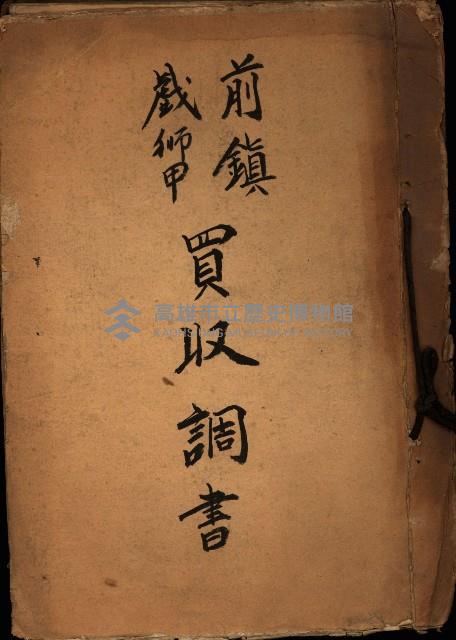 前鎮
戲獅甲
買収調書
高雄市立歷史博物館
KAOHSIUNG MUSEUM OF HISTORY